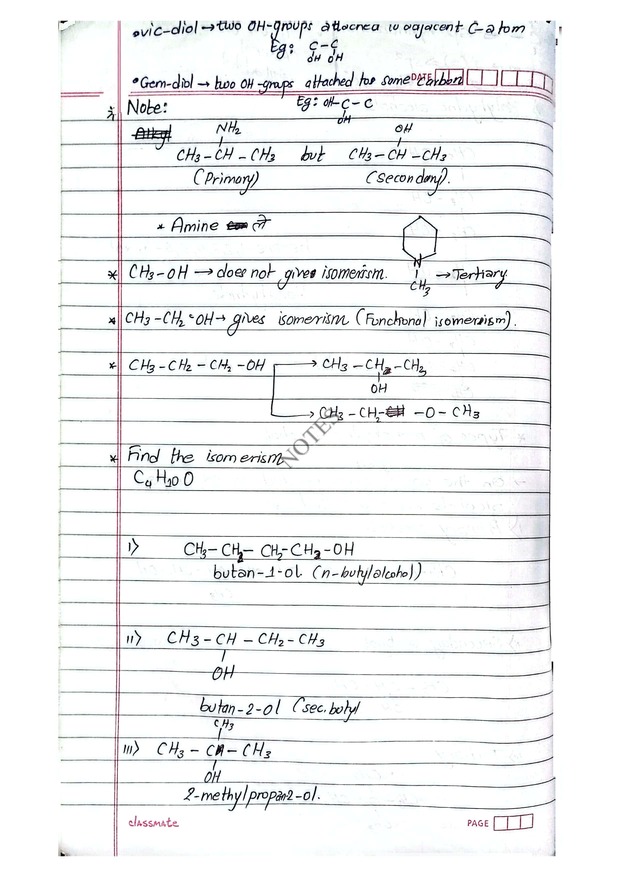 •vic-diol → two OH-groups attached to adjacent C-atom
Eg: C-C
OH OH
DATE
•Gem-diol → two OH-groups attached to same Carbon
Eg: OH-C-C
OH
* Note:
NH2 OH
CH3-CH-CH3 but CH3-CH-CH3
(Primary) (Secondary).
* Amine
N
* CH3-OH → does not gives isomerism. → Tertiary
CH3
* CH3-CH2-OH → gives isomerism (Functional isomerism).
* CH3-CH2-CH2-OH → CH3-CH2-CH3
OH
→ CH3-CH2-O-CH3
NOTES
* Find the isomerism
C4H10O
i> CH3-CH2-CH2-CH2-OH
butan-1-ol (n-butylalcohol)
ii> CH3-CH-CH2-CH3
OH
butan-2-ol (sec.butyl
CH3
iii> CH3-C-CH3
OH
2-methylpropan2-ol.
classmate PAGE